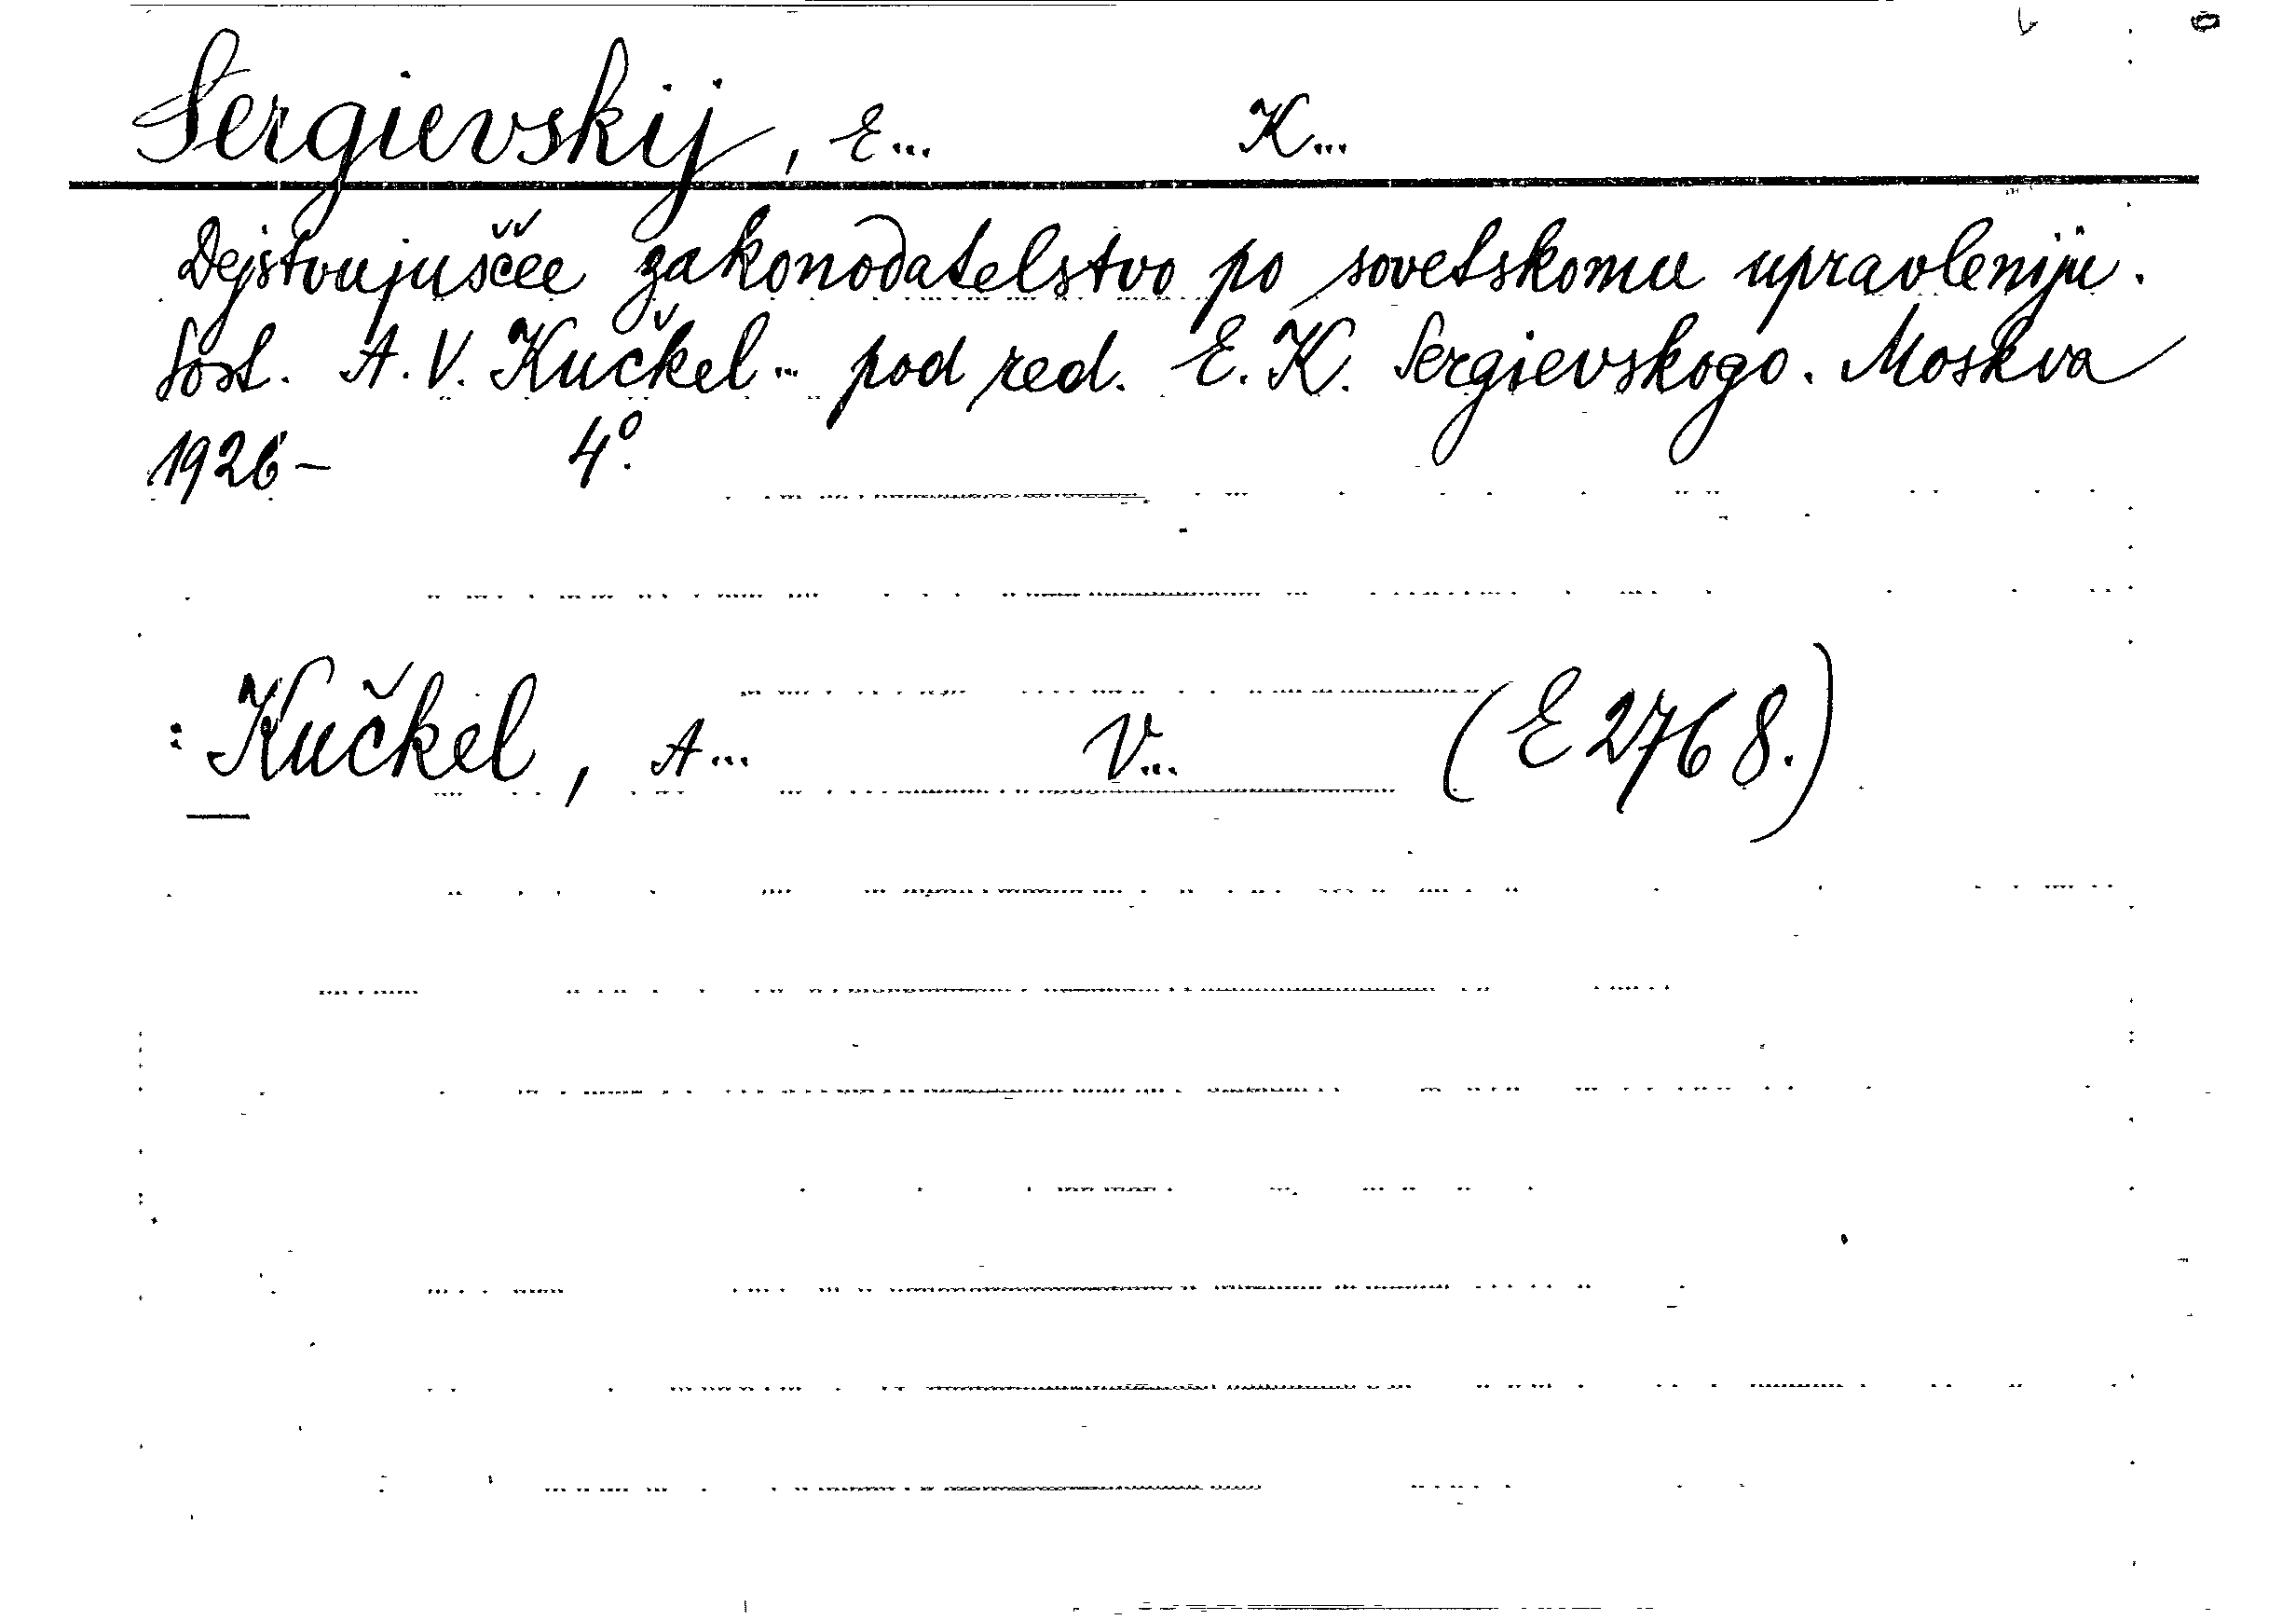 Sergievskij, E... K...
Dejstvujuščee zakonodatelstvo po sovetskomu upravleniju.
Sost. A. V. Kučkel... pod red. E. K. Sergievskogo. Moskva
1926– 4°.
: Kučkel, A... V... (E 2768.)